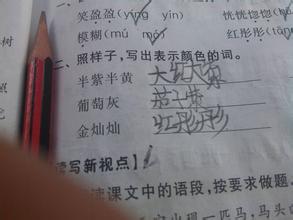 笑盈盈(yíng yín) 恍恍惚惚(
模糊(mú mó) 红彤彤(tōn
树
二、照样子,写出表示颜色的词。
半紫半黄 大红大
葡萄灰 茄子紫
金灿灿 红彤彤
读写新视点】
读课文中的语段,按要求做题。
出现一匹马,马头